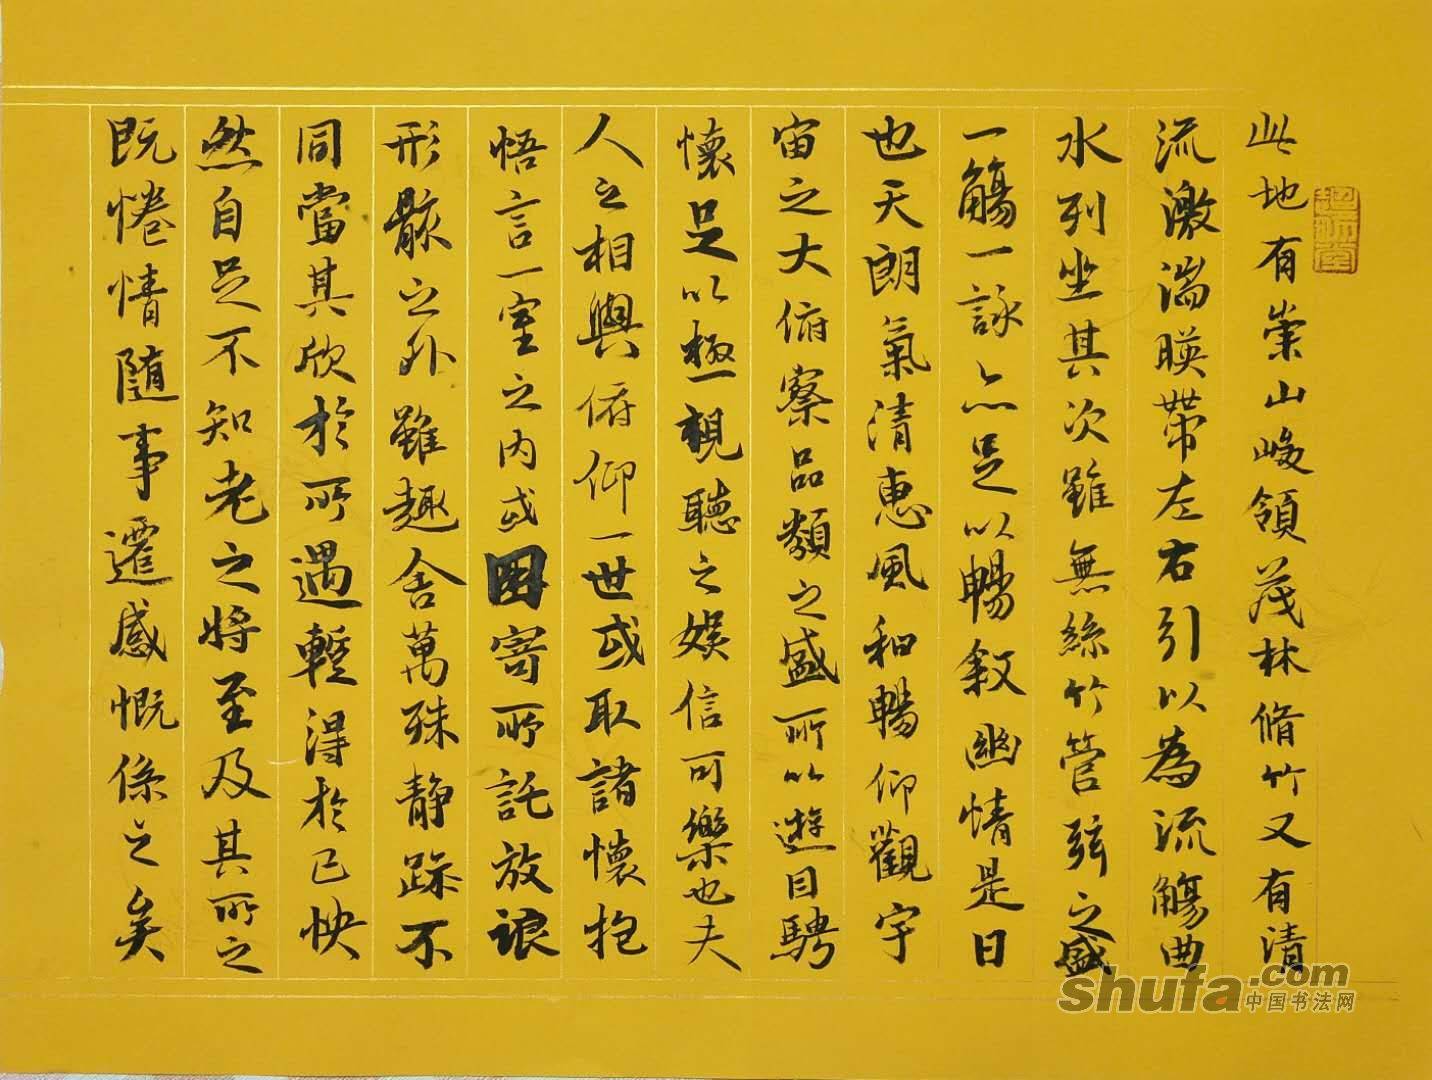 此地有崇山峻領茂林脩竹又有清
流激湍暎帶左右引以為流觴曲
水列坐其次雖無絲竹管弦之盛
一觴一詠亦足以暢叙幽情是日
也天朗氣清惠風和暢仰觀宇
宙之大俯察品類之盛所以遊目騁
懷足以極視聽之娛信可樂也夫
人之相與俯仰一世或取諸懷抱
悟言一室之内或因寄所託放浪
形骸之外雖趣舍萬殊静躁不
同當其欣於所遇暫得於己怏
然自足不知老之將至及其所之
既惓情随事遷感慨係之矣
shufa.com
中国书法网